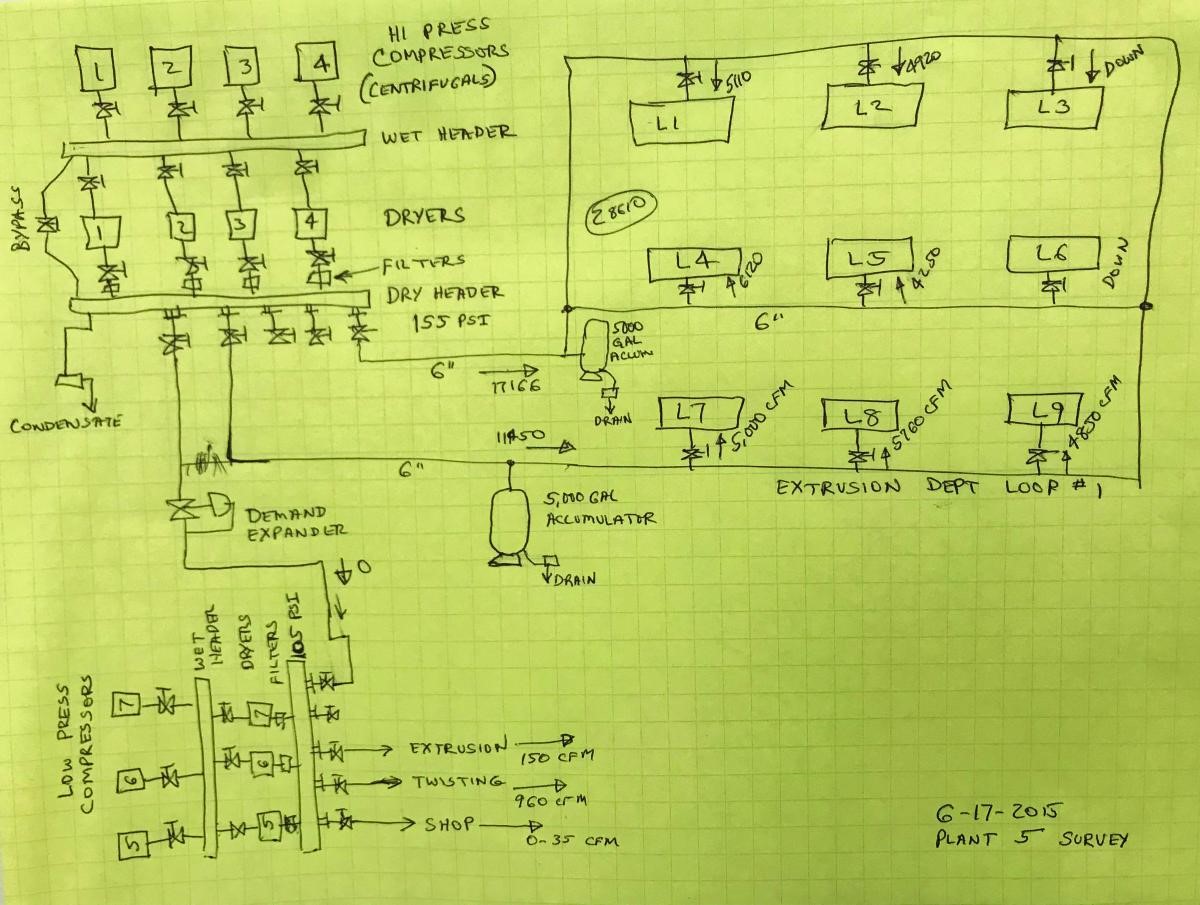 HI PRESS
COMPRESSORS
(CENTRIFUGALS)
1
2
3
4
WET HEADER
BYPASS
1
2
3
4
DRYERS
FILTERS
DRY HEADER
155 PSI
CONDENSATE
6"
17166
5000
GAL
ACCUM
DRAIN
L1
5110
L2
4920
L3
DOWN
28610
L4
6120
L5
4250
L6
DOWN
6"
L7
5,000 CFM
L8
5760 CFM
L9
4850 CFM
11450
6"
EXTRUSION DEPT LOOP #1
5,000 GAL
ACCUMULATOR
DRAIN
DEMAND
EXPANDER
0
LOW PRESS
COMPRESSORS
WET
HEADER
DRYERS
FILTERS
105 PSI
7
7
6
6
5
5
EXTRUSION
150 CFM
TWISTING
960 CFM
SHOP
0-35 CFM
6-17-2015
PLANT 5 SURVEY